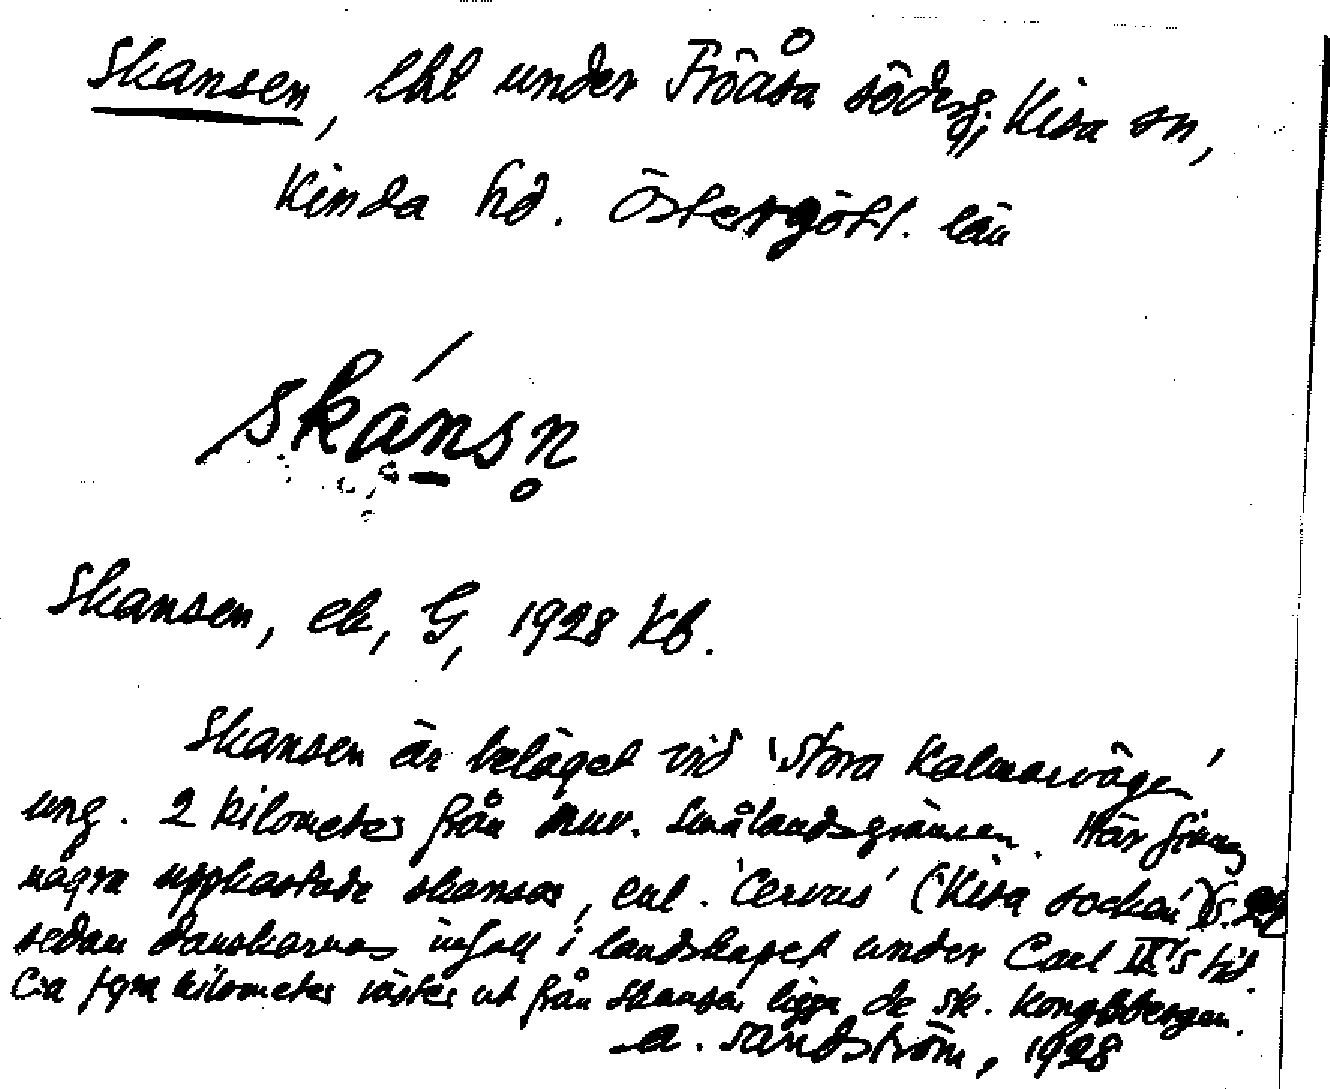 Skansen, lht under Fröåsa söderg., Kisa sn,
Kinda hd. Östergötl. län
skánsn̥
Skansen, lh, G, 1928 Kb.
Skansen är beläget vid 'Stora Kalmarvägen'
ung. 2 kilometer från nuv. Smålandsgränsen. Här finns
några uppkastade skansar, enl. 'Cervus' ('Kisa socken') s.
sedan danskarnas infall i landskapet under Carl IX's tid.
C:a fyra kilometer väster ut från Skansen ligga de sk. Kongsbergen.
A. Sandström, 1928